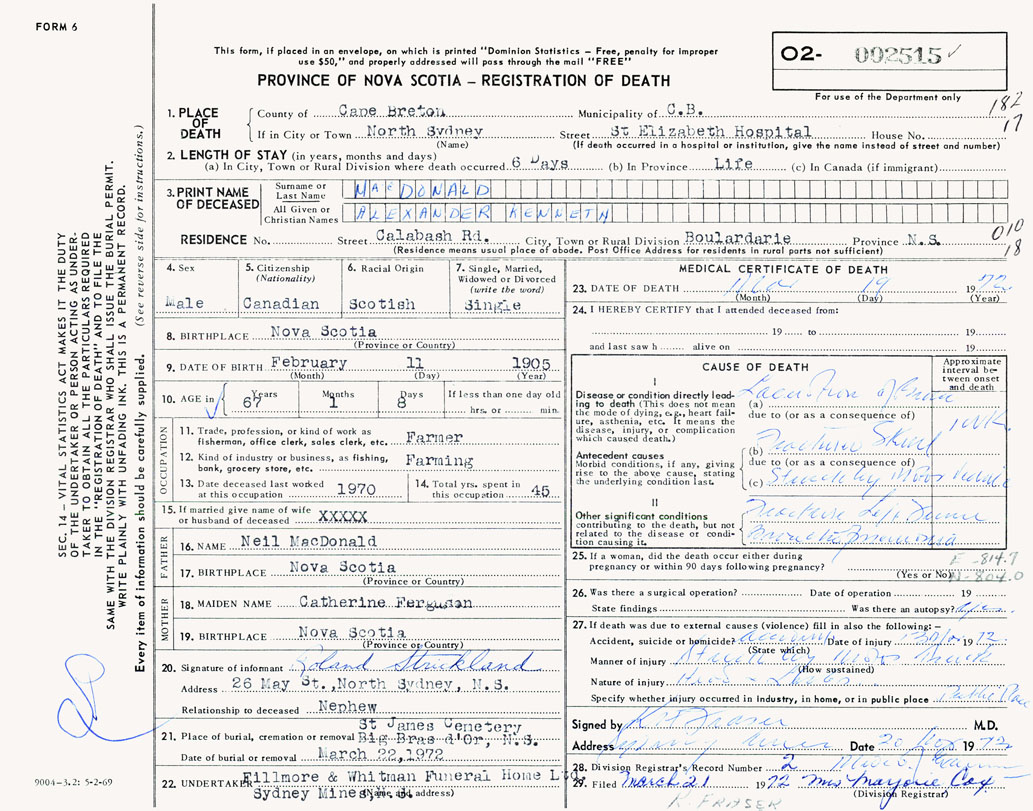 FORM 6
This form, if placed in an envelope, on which is printed "Dominion Statistics – Free, penalty for improper
use $50," and properly addressed will pass through the mail "FREE"
PROVINCE OF NOVA SCOTIA – REGISTRATION OF DEATH
O2- 002515 ✓
For use of the Department only
182
17
SEC. 14 – VITAL STATISTICS ACT MAKES IT THE DUTY
OF THE UNDERTAKER OR PERSON ACTING AS UNDER-
TAKER TO OBTAIN ALL THE PARTICULARS REQUIRED
IN THE "REGISTRATION OF DEATH" AND TO FILE THE
SAME WITH THE DIVISION REGISTRAR WHO SHALL ISSUE THE BURIAL PERMIT.
WRITE PLAINLY WITH UNFADING INK. THIS IS A PERMANENT RECORD.
Every item of information should be carefully supplied. (See reverse side for instructions.)
1. PLACE OF DEATH
County of Cape Breton Municipality of C.B.
If in City or Town North Sydney Street St Elizabeth Hospital House No.
(Name) (If death occurred in a hospital or institution, give the name instead of street and number)
2. LENGTH OF STAY (in years, months and days)
(a) In City, Town or Rural Division where death occurred 6 Days (b) In Province Life (c) In Canada (if immigrant)
3. PRINT NAME OF DECEASED
Surname or Last Name MacDONALD
All Given or Christian Names ALEXANDER KENNETH
RESIDENCE No. Street Calabash Rd. City, Town or Rural Division Boulardarie Province N.S.
(Residence means usual place of abode. Post Office Address for residents in rural parts not sufficient)
010
18
4. Sex
Male
5. Citizenship
(Nationality)
Canadian
6. Racial Origin
Scotish
7. Single, Married,
Widowed or Divorced
(write the word)
Single
8. BIRTHPLACE Nova Scotia
(Province or Country)
9. DATE OF BIRTH February 11 1905
(Month) (Day) (Year)
10. AGE in Years Months Days If less than one day old
67 1 8 hrs. or min.
OCCUPATION
11. Trade, profession, or kind of work as
fisherman, office clerk, sales clerk, etc. Farmer
12. Kind of industry or business, as fishing,
bank, grocery store, etc. Farming
13. Date deceased last worked
at this occupation 1970
14. Total yrs. spent in
this occupation 45
15. If married give name of wife
or husband of deceased XXXXX
FATHER
16. NAME Neil MacDonald
17. BIRTHPLACE Nova Scotia
(Province or Country)
MOTHER
18. MAIDEN NAME Catherine Ferguson
19. BIRTHPLACE Nova Scotia
(Province or Country)
20. Signature of informant Roland Strickland
Address 26 May St., North Sydney, N.S.
Relationship to deceased Nephew
21. Place of burial, cremation or removal St James Cemetery
Big Bras d'Or, N.S.
Date of burial or removal March 22,1972
22. UNDERTAKER Fillmore & Whitman Funeral Home Ltd.
Sydney Mines, N.S.
(Name and address)
9004-3.2: 5-2-69
MEDICAL CERTIFICATE OF DEATH
23. DATE OF DEATH Mar 19 1972
(Month) (Day) (Year)
24. I HEREBY CERTIFY that I attended deceased from:
19 to 19
and last saw h alive on 19
CAUSE OF DEATH
Approximate
interval be-
tween onset
and death
I
Disease or condition directly lead-
ing to death (This does not mean
the mode of dying, e.g., heart fail-
ure, asthenia, etc. It means the
disease, injury, or complication
which caused death.)
(a) Laceration of Brain
1 wk.
due to (or as a consequence of)
Antecedent causes
Morbid conditions, if any, giving
rise to the above cause, stating
the underlying condition last.
(b) Fracture Skull
due to (or as a consequence of)
(c) Struck by Motor Vehicle
II
Other significant conditions
contributing to the death, but not
related to the disease or condi-
tion causing it.
Fracture Left Femur
Pneumonia
25. If a woman, did the death occur either during
pregnancy or within 90 days following pregnancy?
(Yes or No)
E-814.7
N-804.0
26. Was there a surgical operation? Date of operation 19
State findings Was there an autopsy? Yes
27. If death was due to external causes (violence) fill in also the following:–
Accident, suicide or homicide? accident Date of injury 1972
(State which)
Manner of injury Struck by Motor
(How sustained)
Nature of injury
Specify whether injury occurred in industry, in home, or in public place Public Place
Signed by Fraser M.D.
Address Sydney Mines Date 20 1972
28. Division Registrar's Record Number 2
29. Filed March 21 1972 Mrs Marjorie Cox
(Division Registrar)
K. FRASER